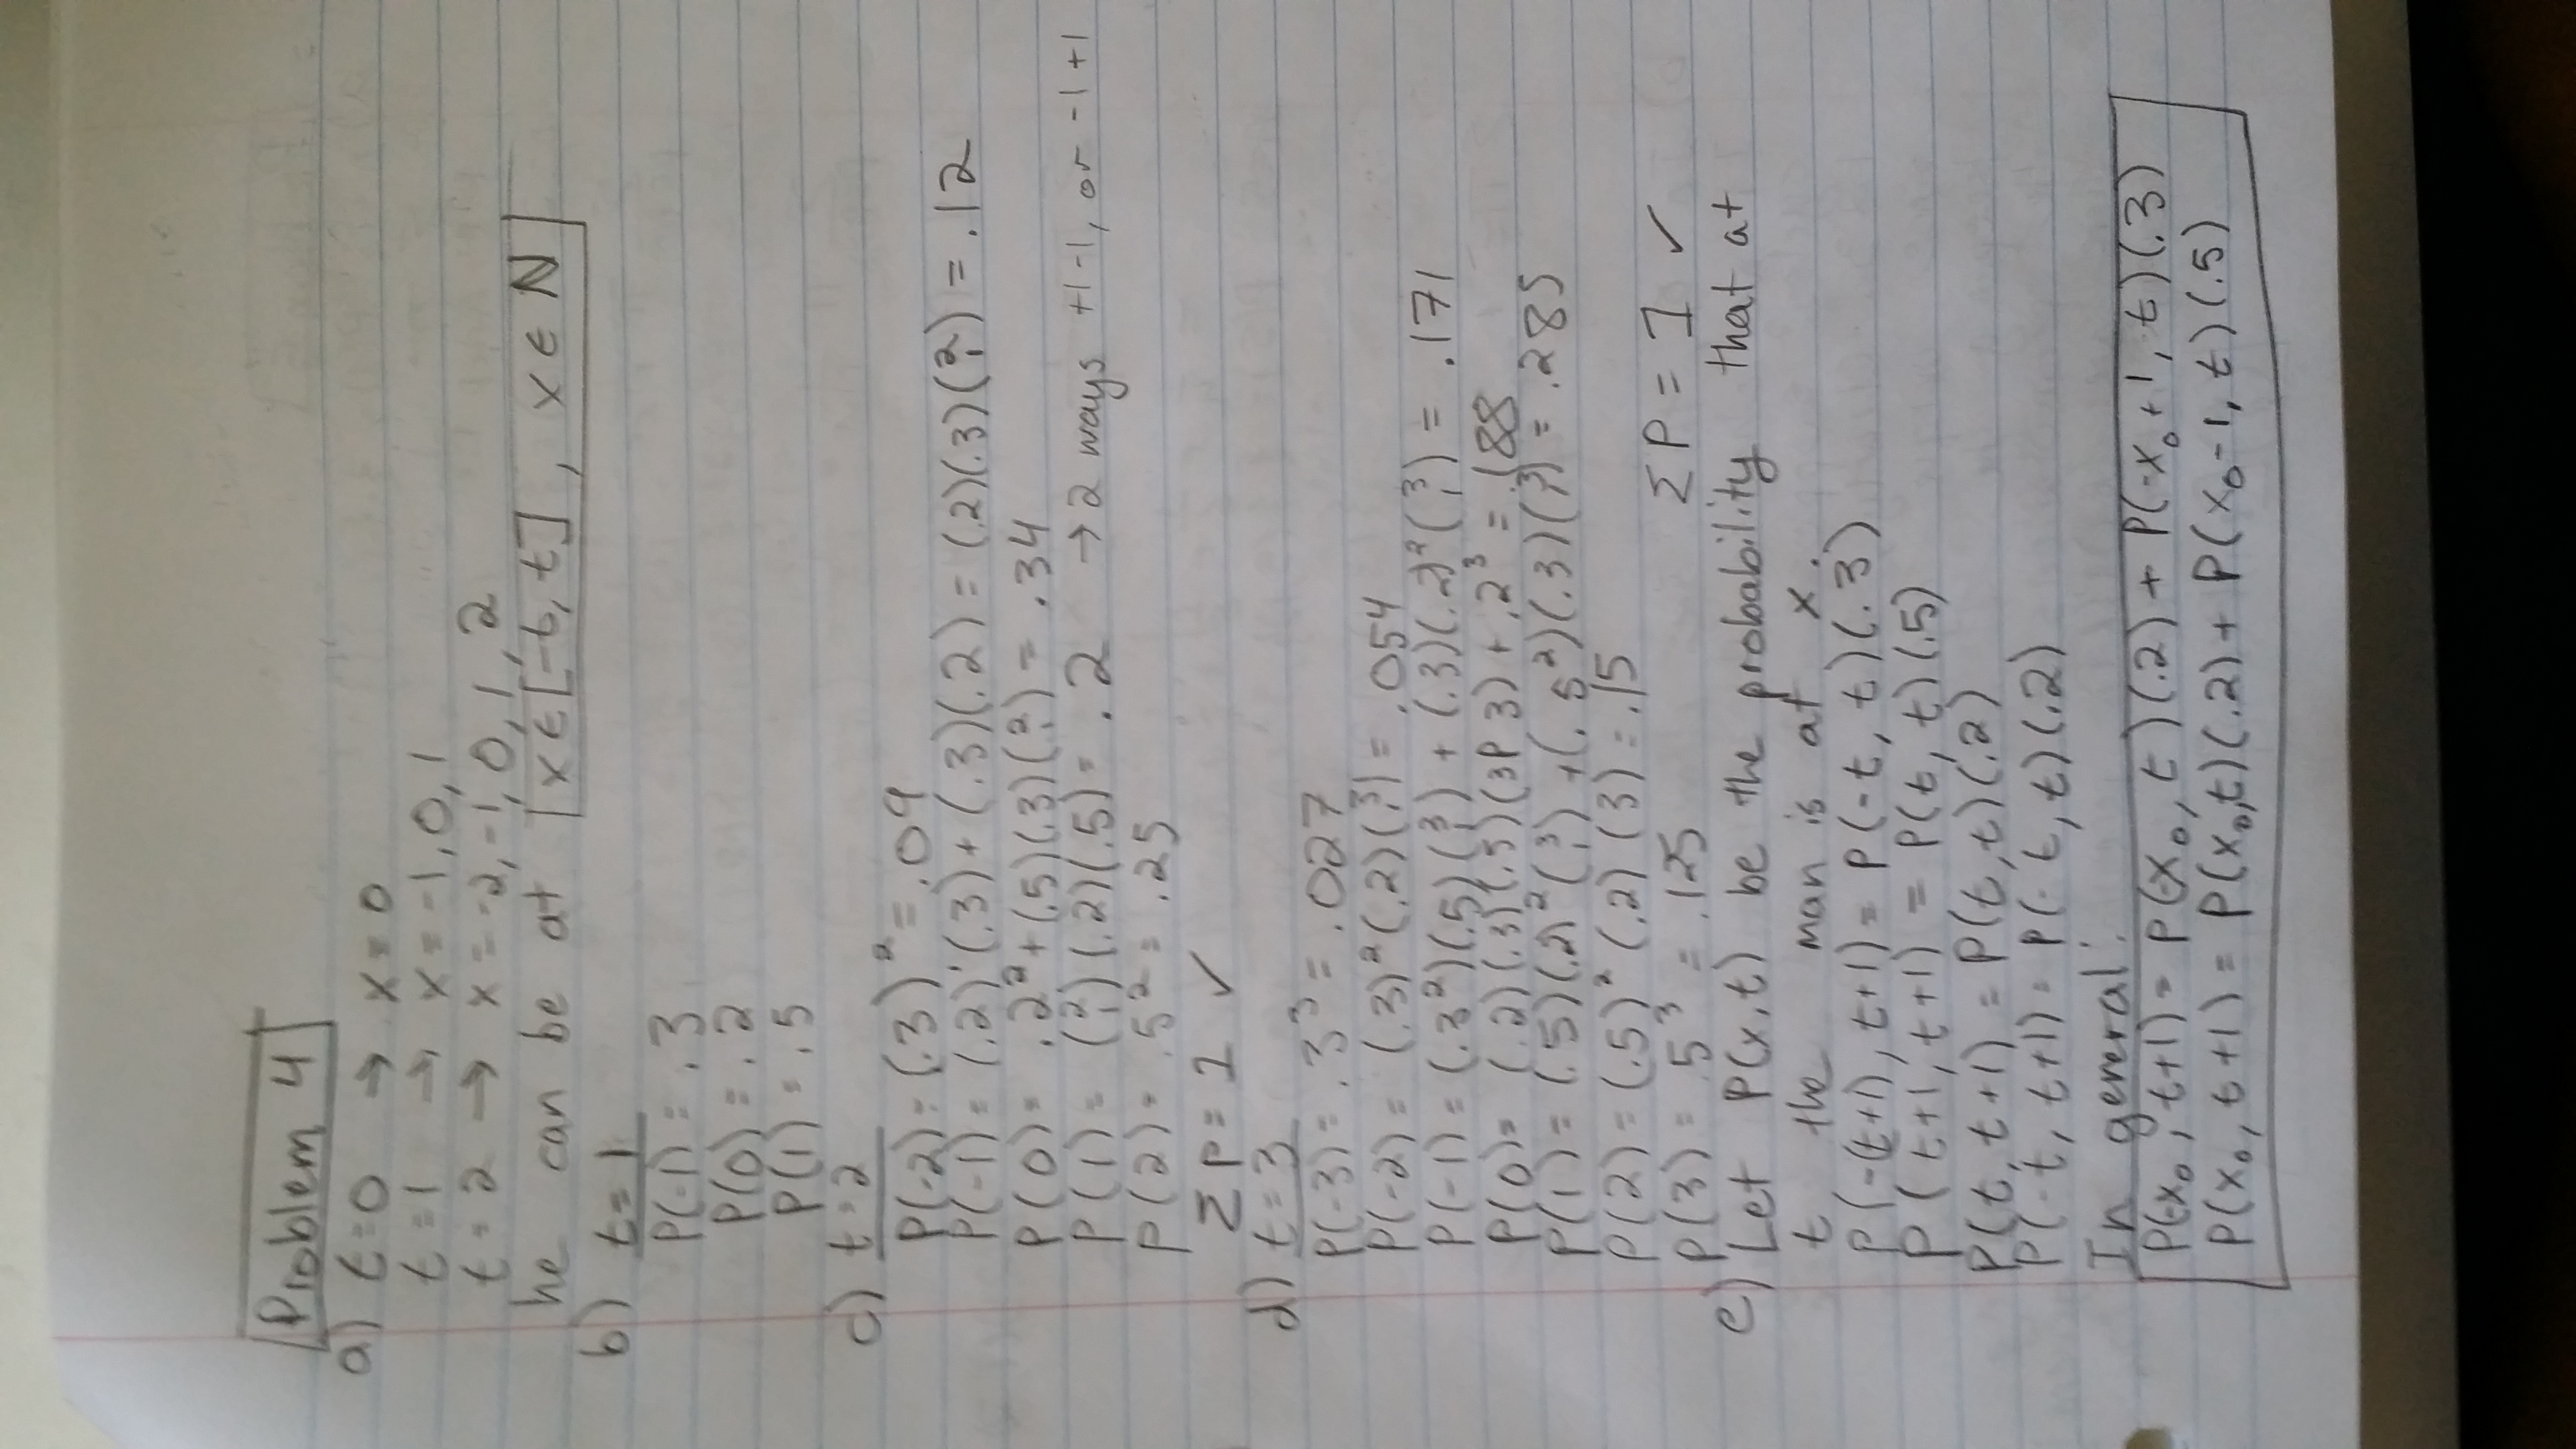 Problem 4
a) t=0 → x=0
t=1 → x=-1,0,1
t=2 → x=-2,-1,0,1,2
he can be at x∈[-t,t], x∈ℕ
b) t=1
P(-1)=.3
P(0)=.2
P(1)=.5
c) t=2
P(-2)=(.3)²=.09
P(-1)=(.2)·(.3)+(.3)(.2)=(.2)(.3)(2 1)=.12
P(0)=.2²+(.5)(.3)(2 1)=.34
P(1)=(2 1)(.2)(.5)=.2 → 2 ways +1-1, or -1+1
P(2)=.5²=.25
ΣP=1 ✓
d) t=3
P(-3)=.3³=.027
P(-2)=(.3)²(.2)(3 1)=.054
P(-1)=(.3²)(.5)(3 1)+(.3)(.2)²(3 1)=.171
P(0)=(.2)(.3)(.5)(3P3)+.2³=.188
P(1)=(.5)(.2)²(3 1)+(.5²)(.3)(3 1)=.285
P(2)=(.5)²(.2)(3)=.15
P(3)=.5³=.125 ΣP=1 ✓
e) Let P(x,t) be the probability that at
t the man is at x.
P(-(t+1), t+1)=P(-t, t)(.3)
P(t+1, t+1)=P(t, t)(.5)
P(t, t+1)=P(t,t)(.2)
P(-t, t+1)=P(-t,t)(.2)
In general:
P(-x₀, t+1)=P(-x₀, t)(.2)+P(-x₀+1, t)(.3)
P(x₀, t+1)=P(x₀,t)(.2)+P(x₀-1, t)(.5)